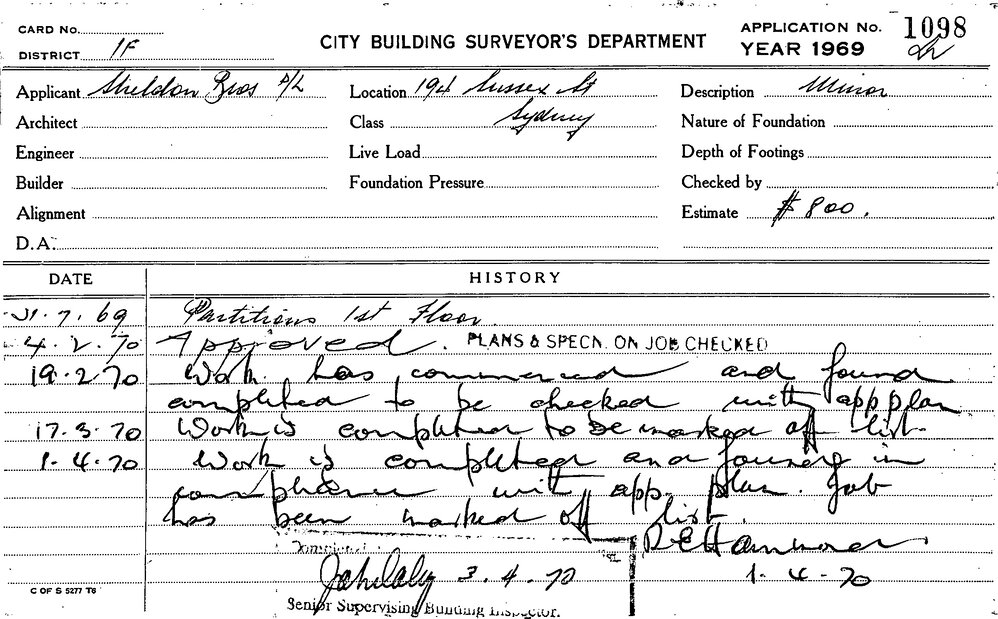 CARD No.
DISTRICT 1F
CITY BUILDING SURVEYOR'S DEPARTMENT
APPLICATION No. 1098
YEAR 1969
Applicant Sheldon Bros P/L
Location 194 Sussex St
Sydney
Description Minor
Architect
Class
Nature of Foundation
Engineer
Live Load
Depth of Footings
Builder
Foundation Pressure
Checked by
Alignment
Estimate $800.
D.A.
DATE HISTORY
31.7.69 Partitions 1st Floor
4.2.70 Approved. PLANS & SPECN. ON JOB CHECKED
19.2.70 Work has commenced and found
completed to be checked with app plan
17.3.70 Work is completed to be marked off list.
1.4.70 Work is completed and found in
compliance with app. plan. Job
has been marked off list.
Completed
3.4.70
1.4.70
Senior Supervising Building Inspector.
C OF S 5277 T6